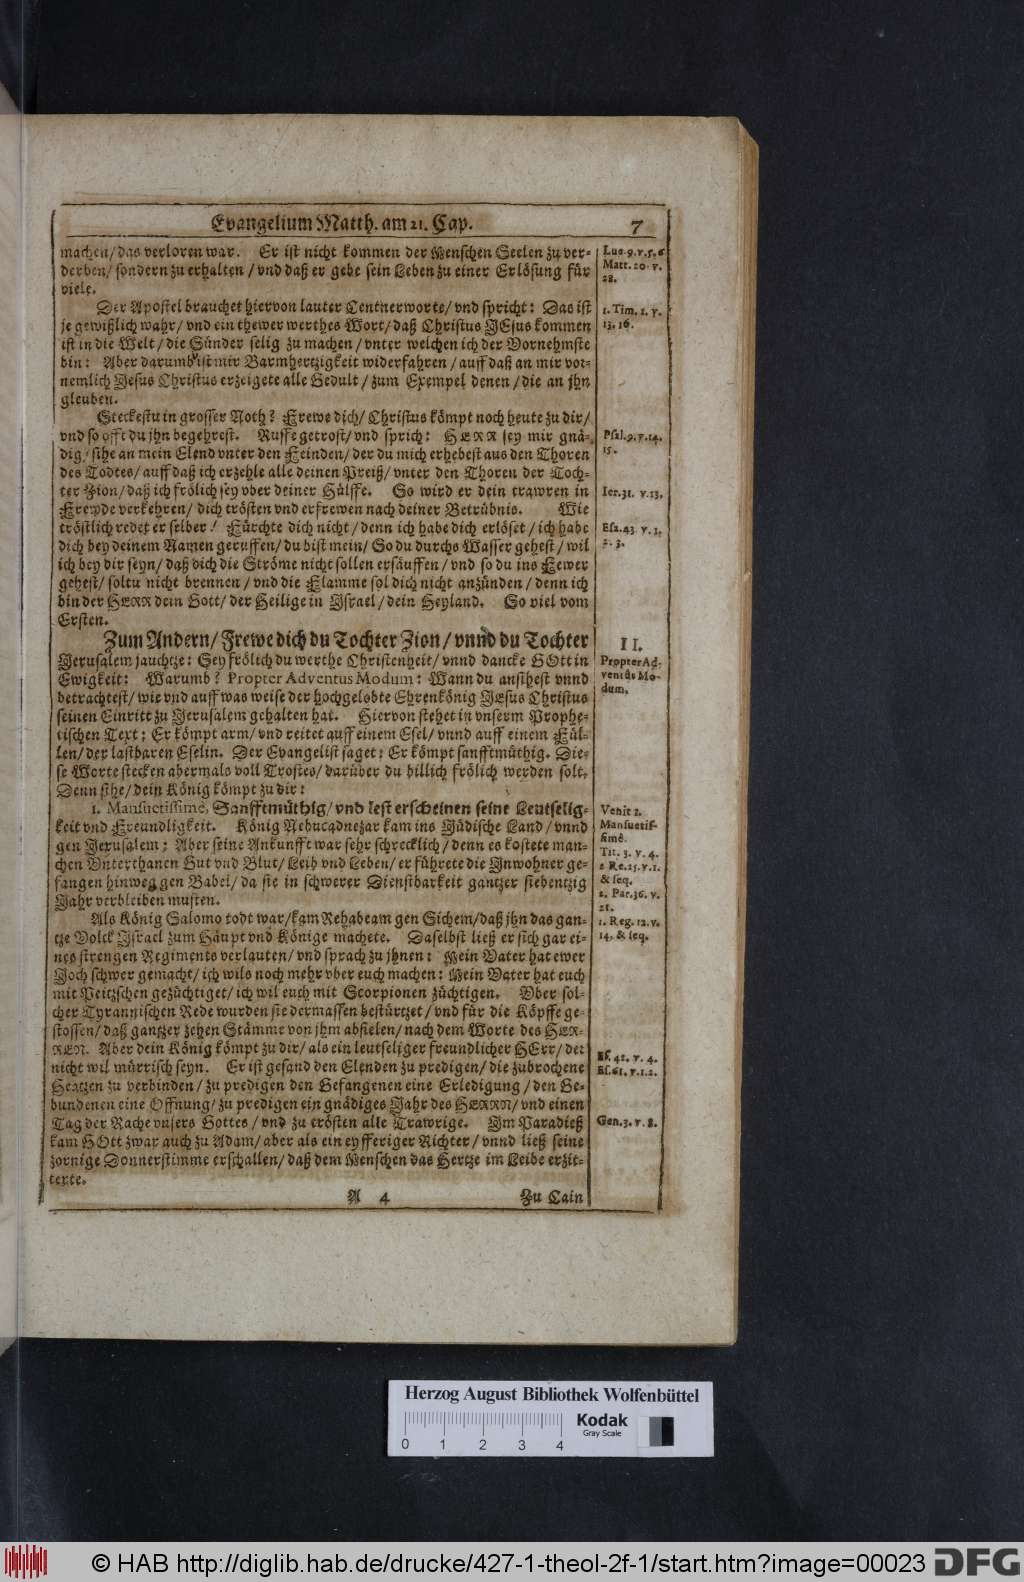 Evangelium Matth. am 21. Cap. 7
machen/ das verloren war. Er ist nicht kommen der Menschen Seelen zu ver-
derben/ sondern zu erhalten / vnd daß er gebe sein Leben zu einer Erlösung für
viele.
Der Apostel brauchet hiervon lauter Centnerworte/ vnd spricht: Das ist
je gewißlich wahr/ vnd ein thewer werthes Wort/ daß Christus JEsus kommen
ist in die Welt/ die Sünder selig zu machen / vnter welchen ich der Vornehmste
bin: Aber darumb ist mir Barmhertzigkeit widerfahren / auff daß an mir vor-
nemlich Jesus Christus erzeigete alle Gedult / zum Exempel denen / die an jhn
gleuben.
Steckestu in grosser Noth? Frewe dich/ Christus kömpt noch heute zu dir/
vnd so offt du jhn begehrest. Ruffe getrost/ vnd sprich: HERR sey mir gnä-
dig/ sihe an mein Elend vnter den Feinden/ der du mich erhebest aus den Thoren
des Todtes/ auff daß ich erzehle alle deinen Preiß/ vnter den Thoren der Toch-
ter Zion/ daß ich frölich sey vber deiner Hülffe. So wird er dein trawren in
Frewde verkehren/ dich trösten vnd erfrewen nach deiner Betrübnis. Wie
tröstlich redet er selber! Fürchte dich nicht/ denn ich habe dich erlöset / ich habe
dich bey deinem Namen geruffen/ du bist mein/ So du durchs Wasser gehest/ wil
ich bey dir seyn/ daß dich die Ströme nicht sollen ersäuffen/ vnd so du ins Fewer
gehest/ soltu nicht brennen / vnd die Flamme sol dich nicht anzünden / denn ich
bin der HERR dein Gott/ der Heilige in Jsrael / dein Heyland. So viel vom
Ersten.
Zum Andern/ Frewe dich du Tochter Zion/ vnnd du Tochter
Jerusalem jauchtze: Sey frölich du werthe Christenheit/ vnnd dancke GOtt in
Ewigkeit: Warumb? Propter Adventus Modum: Wann du ansihest vnnd
betrachtest/ wie vnd auff was weise der hochgelobte Ehrenkönig JEsus Christus
seinen Einritt zu Jerusalem gehalten hat. Hiervon stehet in vnserm Prophe-
tischen Text: Er kömpt arm/ vnd reitet auff einem Esel/ vnnd auff einem Fül-
len/ der lastbaren Eselin. Der Evangelist saget: Er kömpt sanfftmüthig. Die-
se Worte stecken abermals voll Trostes/ darüber du billich frölich werden solt.
Denn sihe/ dein König kömpt zu dir:
1. Mansuetissimè, Sanfftmüthig/ vnd lest erscheinen seine Leutselig-
keit vnd Freundligkeit. König Nebucadnezar kam ins Jüdische Land/ vnnd
gen Jerusalem: Aber seine Ankunfft war sehr schrecklich/ denn es kostete man-
chen Vnterthanen Gut vnd Blut/ Leib vnd Leben/ er führete die Jnwohner ge-
fangen hinweg gen Babel/ da sie in schwerer Dienstbarkeit gantzer siebentzig
Jahr verbleiben musten.
Als König Salomo todt war/ kam Rehabeam gen Sichem/ daß jhn das gan-
tze Volck Jsrael zum Häupt vnd Könige machete. Daselbst ließ er sich gar ei-
nes strengen Regiments verlauten/ vnd sprach zu jhnen: Mein Vater hat ewer
Joch schwer gemacht/ ich wils noch mehr vber euch machen: Mein Vater hat euch
mit Peitzschen gezüchtiget/ ich wil euch mit Scorpionen züchtigen. Vber sol-
cher Tyrannischen Rede wurden sie dermassen bestürtzet/ vnd für die Köpffe ge-
stossen/ daß gantzer zehen Stämme von jhm abfielen/ nach dem Worte des HER-
REN. Aber dein König kömpt zu dir/ als ein leutseliger freundlicher HErr/ der
nicht wil mürrisch seyn. Er ist gesand den Elenden zu predigen/ die zubrochene
Hertzen zu verbinden/ zu predigen den Gefangenen eine Erledigung / den Ge-
bundenen eine Offnung/ zu predigen ein gnädiges Jahr des HERRN/ vnd einen
Tag der Rache vnsers Gottes / vnd zu trösten alle Trawrige. Jm Paradieß
kam GOtt zwar auch zu Adam/ aber als ein eyfferiger Richter / vnnd ließ seine
zornige Donnerstimme erschallen/ daß dem Menschen das Hertze im Leibe erzit-
terte.
A 4 Zu Cain
Luc. 9. v. 5. 6
Matt. 20. v.
28.
1. Tim. 1. v.
13. 16.
Psal. 9. v. 14.
15.
Ier. 31. v. 13.
Esa. 43. v. 1.
2. 3.
II.
Propter Ad-
ventûs Mo-
dum.
Venit 1.
Mansuetis-
simè.
Tit. 3. v. 4.
2 Re. 25. v. 1.
& seq.
2. Par. 36. v.
21.
1. Reg. 12. v.
14. & seq.
Es. 42. v. 4.
Es. 61. v. 1. 2.
Gen. 3. v. 8.
Herzog August Bibliothek Wolfenbüttel
0 1 2 3 4
Kodak
Gray Scale
© HAB http://diglib.hab.de/drucke/427-1-theol-2f-1/start.htm?image=00023
DFG